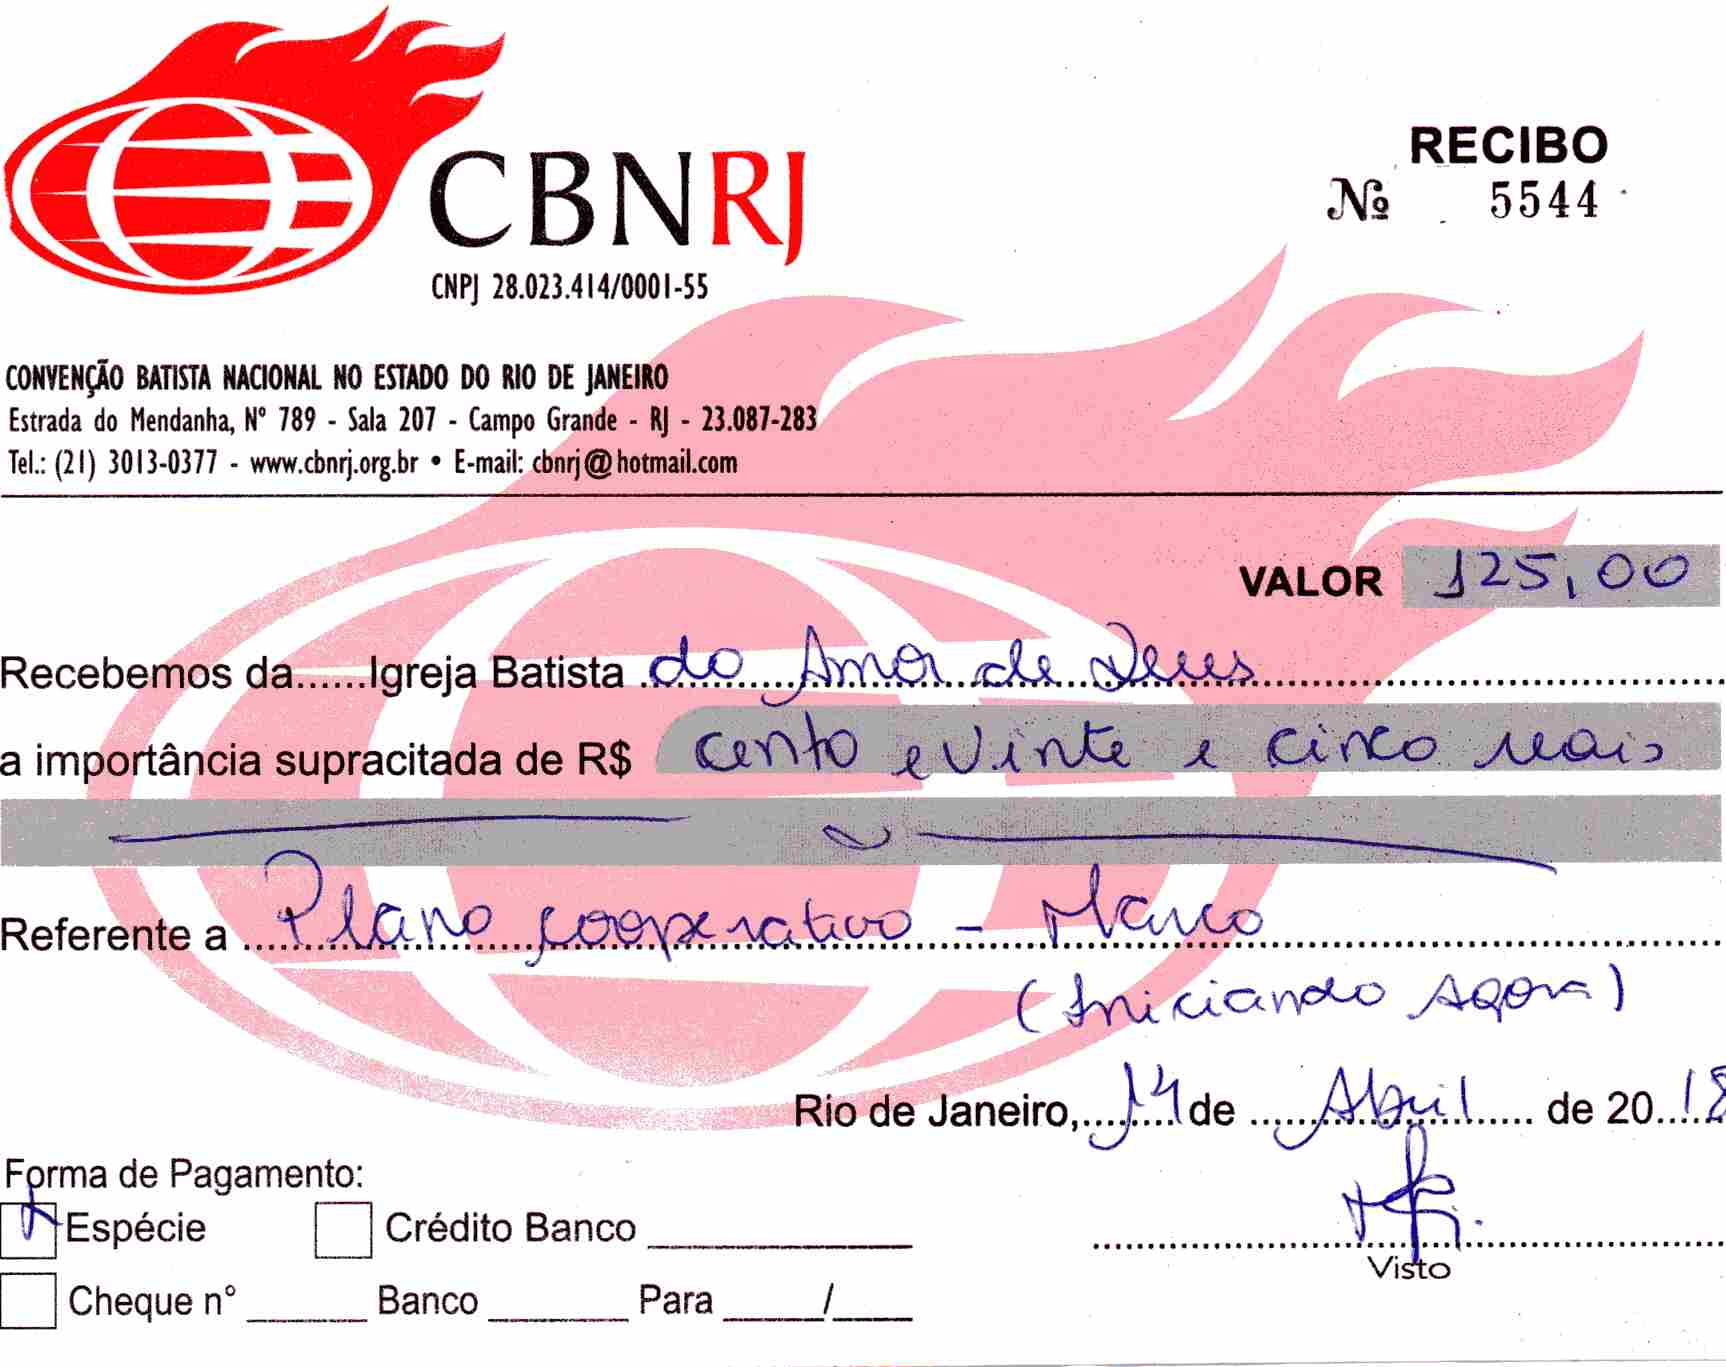 CBNRJ
CNPJ 28.023.414/0001-55
RECIBO
Nº 5544
CONVENÇÃO BATISTA NACIONAL NO ESTADO DO RIO DE JANEIRO
Estrada do Mendanha, Nº 789 - Sala 207 - Campo Grande - RJ - 23.087-283
Tel.: (21) 3013-0377 - www.cbnrj.org.br • E-mail: cbnrj@hotmail.com
VALOR 125,00
Recebemos da......Igreja Batista do Amor de Deus
a importância supracitada de R$ cento e vinte e cinco reais
Referente a Plano cooperativo - Março
(Iniciando Agora)
Rio de Janeiro, 14 de Abril de 2018
Forma de Pagamento:
Espécie Crédito Banco
Visto
Cheque nº Banco Para /